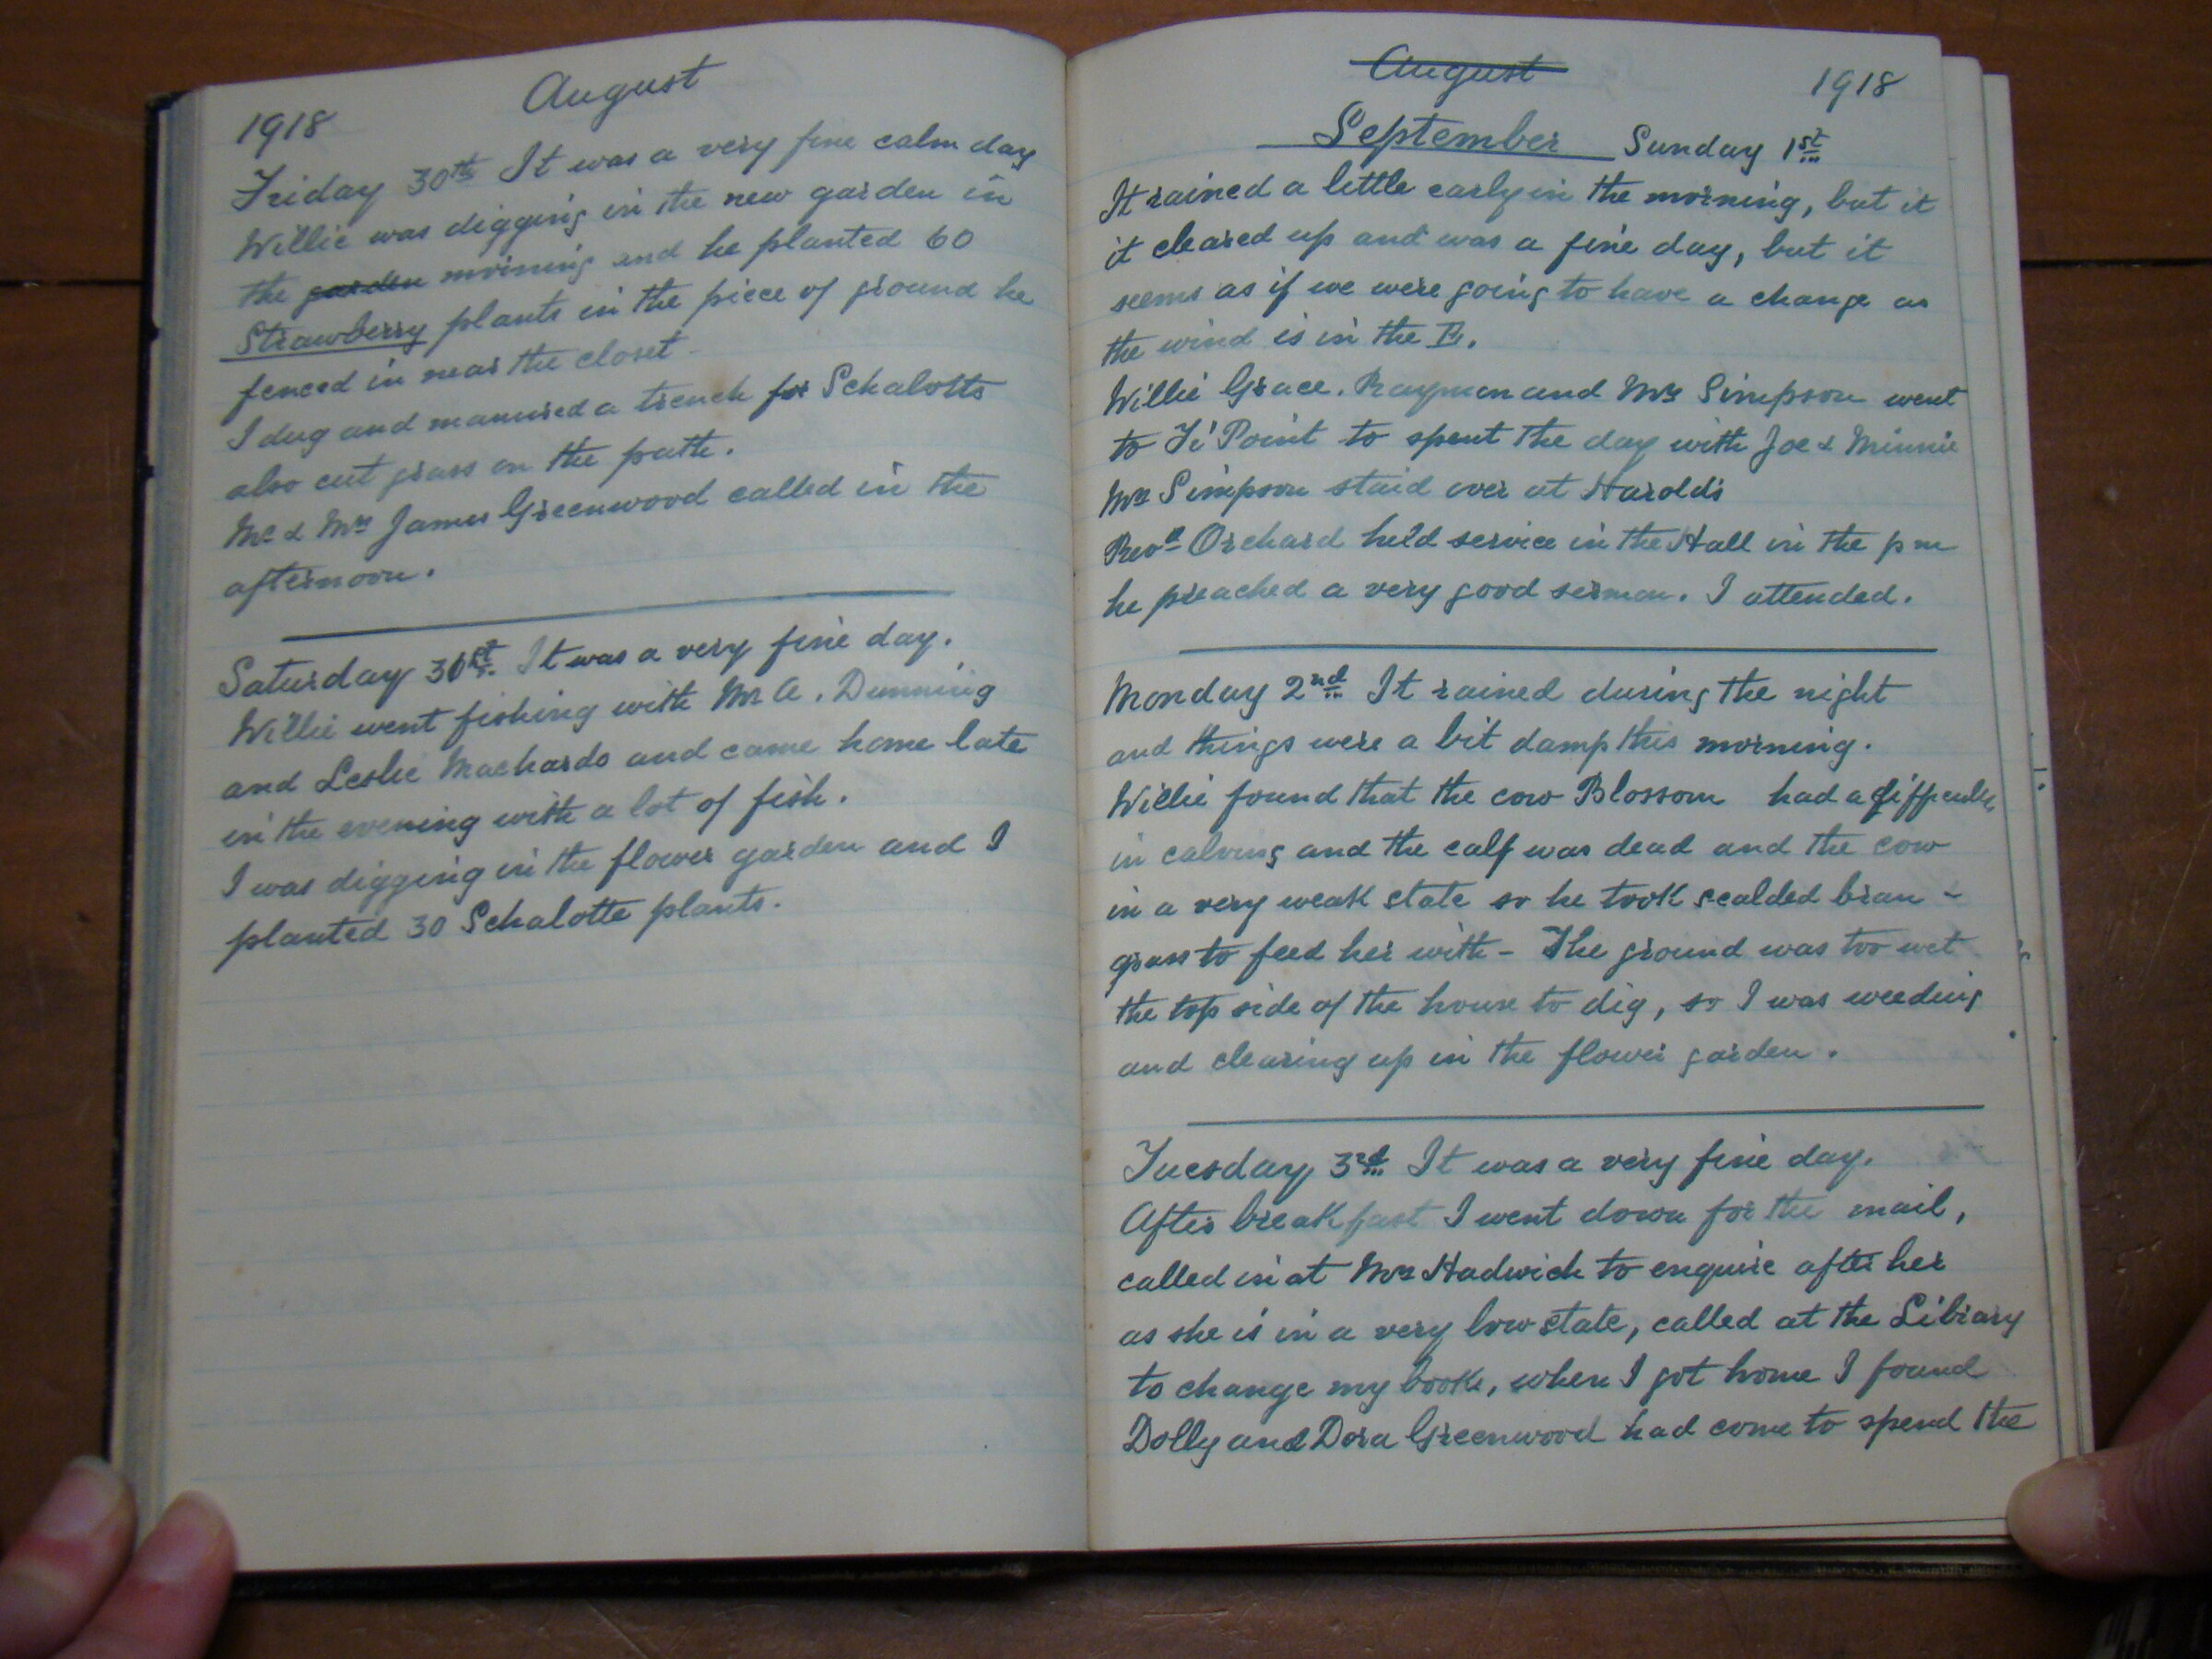 August
1918
Friday 30th It was a very fine calm day
Willie was digging in the new garden in
the garden morning and he planted 60
Strawberry plants in the piece of ground he
fenced in near the closet -
I dug and manured a trench for Schalotts
also cut grass on the path.
Mr & Mrs James Greenwood called in the
afternoon.
Saturday 31st. It was a very fine day.
Willie went fishing with Mr A. Dunning
and Leslie Machardo and came home late
in the evening with a lot of fish.
I was digging in the flower garden and I
planted 30 Schalotte plants.
August
1918
September Sunday 1st
It rained a little early in the morning, but it
it cleared up and was a fine day, but it
seems as if we were going to have a change as
the wind is in the E.
Willie Grace. Raymon and Mrs Simpson went
to Ti Point to spent the day with Joe & Minnie
Mrs Simpson staid over at Harolds
Revd Orchard held service in the Hall in the pm
he preached a very good sermon. I attended.
Monday 2nd It rained during the night
and things were a bit damp this morning.
Willie found that the cow Blossom had a difficulty
in calving and the calf was dead and the cow
in a very weak state so he took scalded bran -
grass to feed her with - The ground was too wet
the top side of the house to dig, so I was weeding
and clearing up in the flower garden.
Tuesday 3rd It was a very fine day.
After breakfast I went down for the mail,
called in at Mrs Hadwick to enquire after her
as she is in a very low state, called at the Library
to change my book, when I got home I found
Dolly and Dora Greenwood had come to spend the